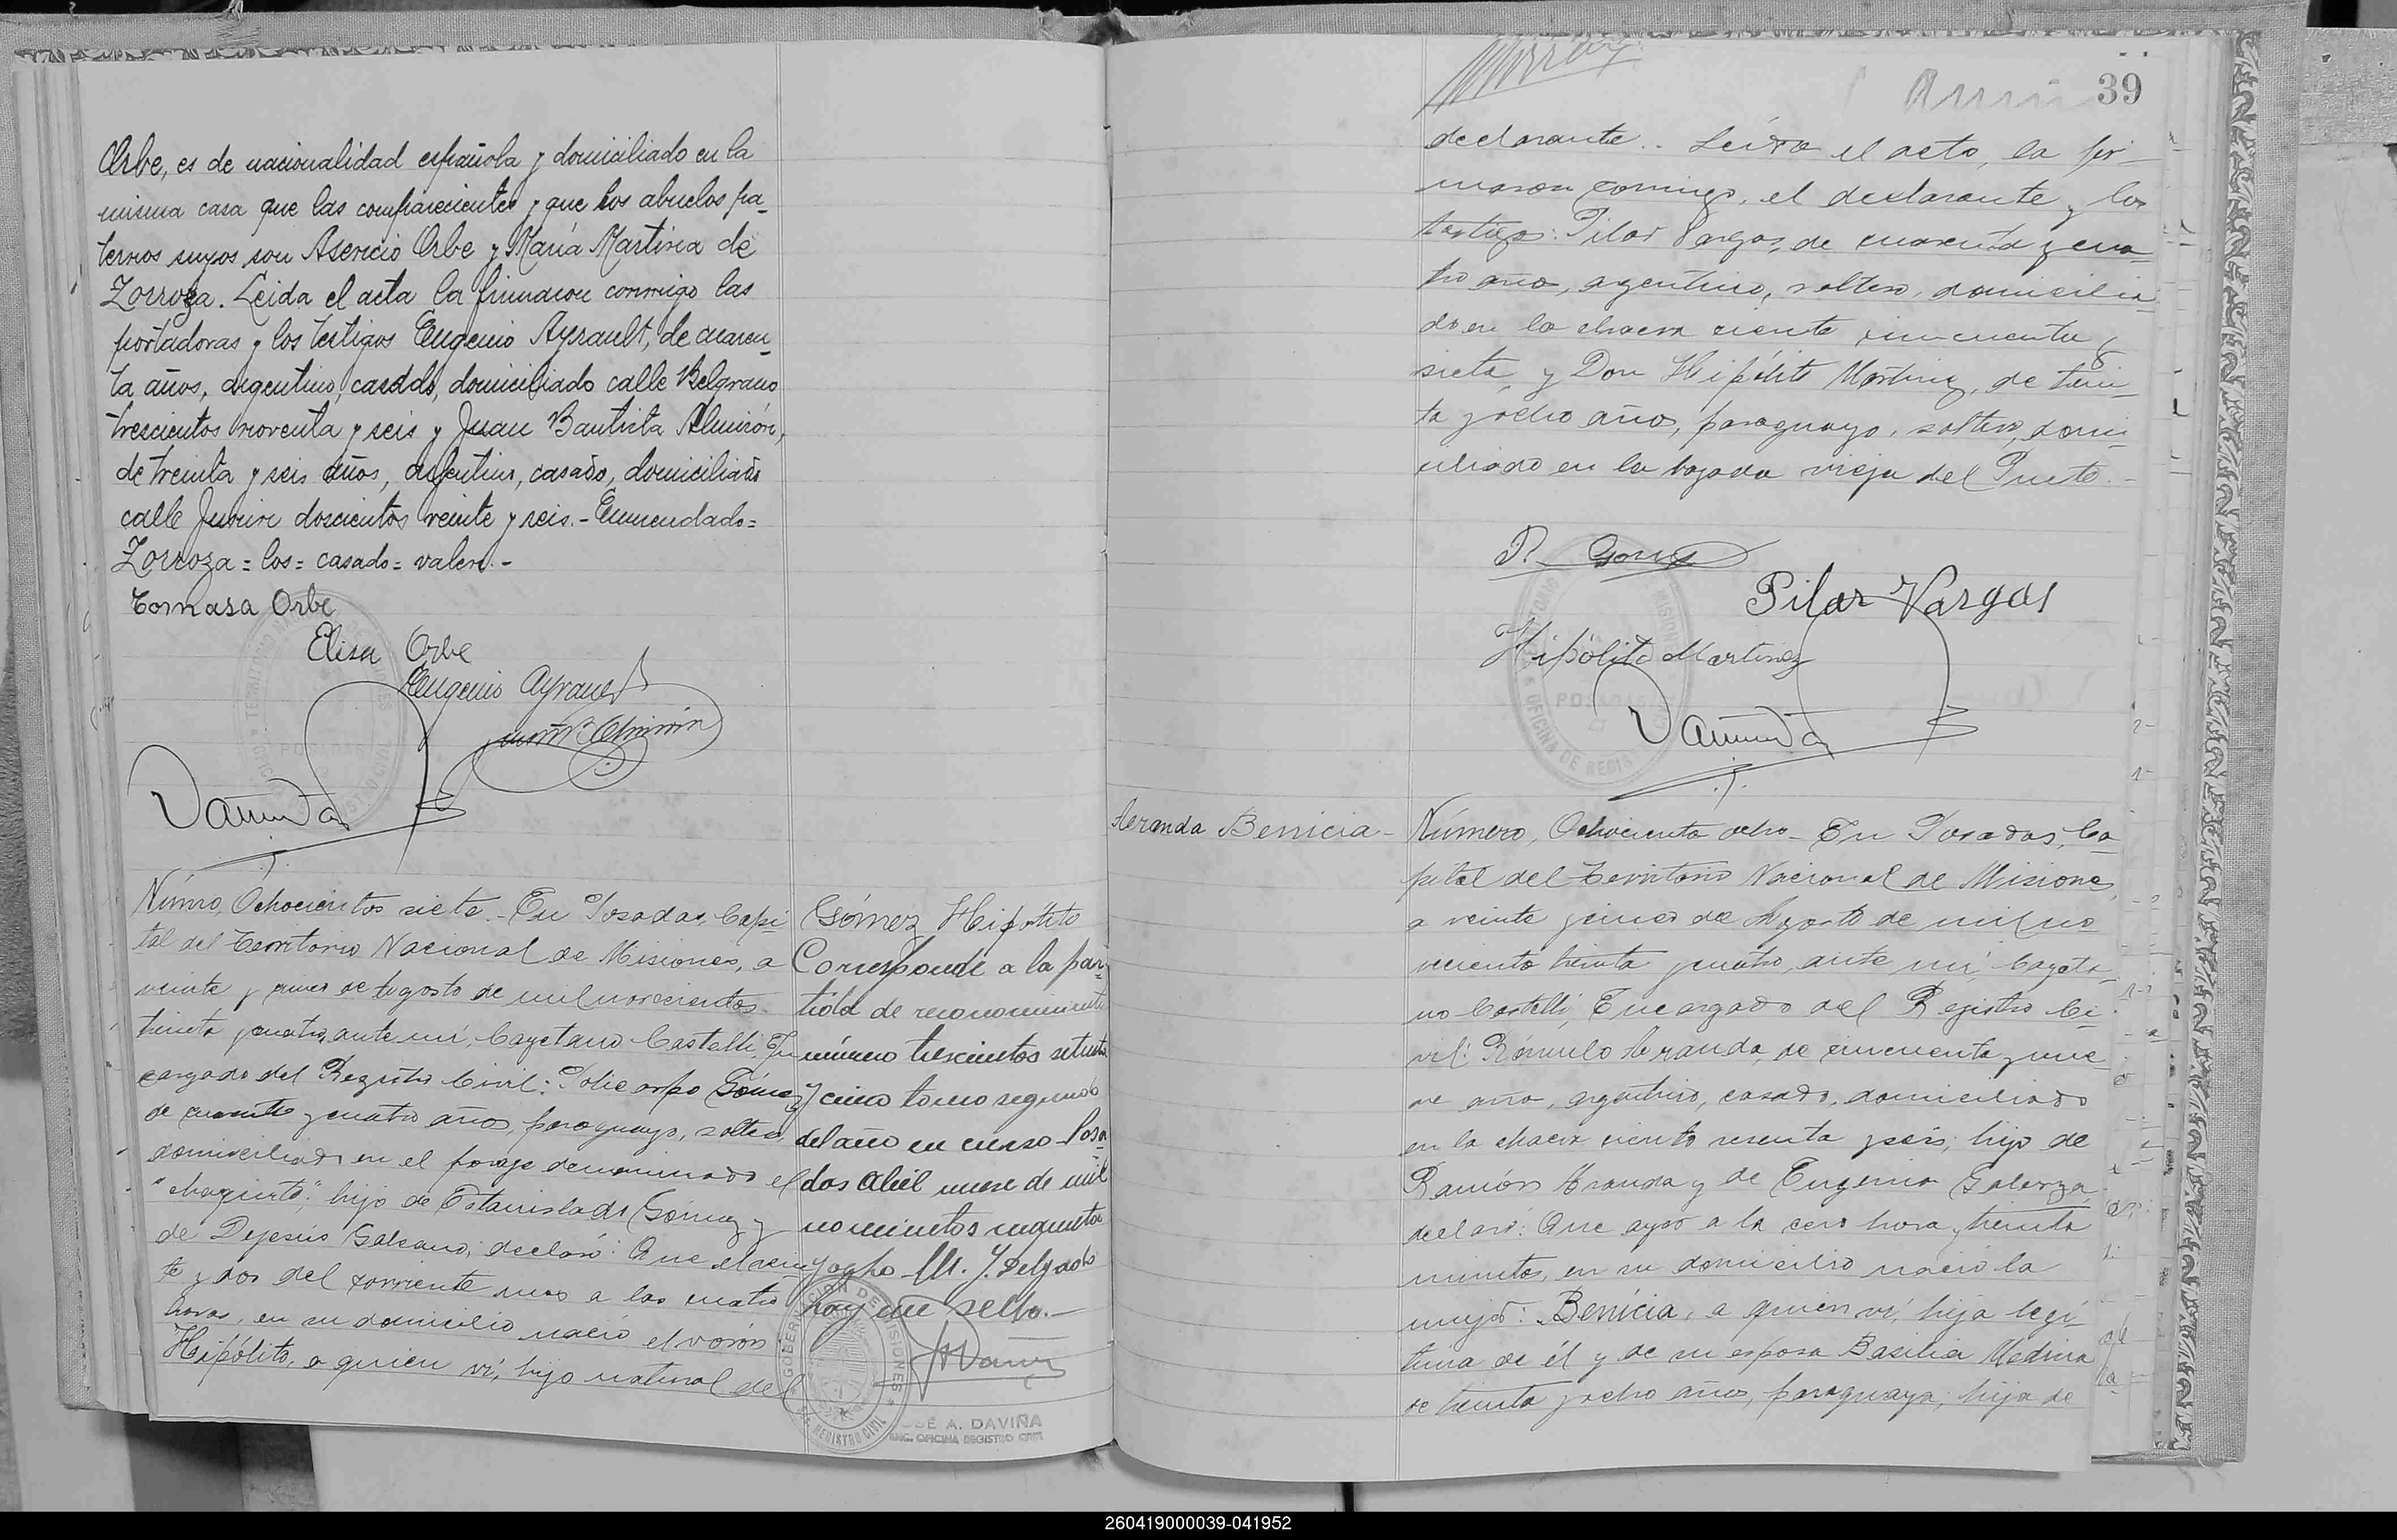 Orbe, es de nacionalidad española y domiciliado en la
misma casa que las comparecientes y que los abuelos pa-
ternos suyos son Asencio Orbe y María Martina de
Zorroza. Leida el acta la firmaron conmigo las
portadoras y los testigos Eugenio Ayrault, de cuaren-
ta años, argentino, casado, domiciliado calle Belgrano
trescientos noventa y seis y Juan Bautista Almirón,
de treinta y seis años, argentino, casado, domiciliado
calle Junin doscientos veinte y seis.- Enmendado=
Zorroza = los = casado = valen.-
Tomasa Orbe
Elisa Orbe
Eugenio Ayrault
Juan B. Almirón
Número, Ochocientos siete.- En Posadas, Capi-
tal del Territorio Nacional de Misiones, a
veinte y cinco de Agosto de mil novecientos
treinta y cuatro, ante mí, Cayetano Castelli, En-
cargado del Registro Civil: Policarpo Gómez
de cuarenta y cuatro años, paraguayo, soltero,
domiciliado en el paraje denominado el
"chaquito", hijo de Estanislado Gómez y
de Dejesús Galeano; declaró: Que el vein-
te y dos del corriente mes a las cuatro
horas, en su domicilio nació el varón
Hipólito, a quien ví, hijo natural del
Gómez Hipólito
Corresponde a la par-
tida de reconocimiento
número trescientos setenta
y cinco tomo segundo
del año en curso - Posa-
das Abril nueve de mil
novecientos cincuenta
y ocho M. J. Delgado
hay un sello.-
GOBERNACIÓN DE MISIONES
REGISTRO CIVIL
JOSÉ A. DAVIÑA
ENC. OFICINA REGISTRO CIVIL
39
declarante.. Leída el acta, la fir-
maron conmigo, el declarante y los
testigos: Pilar Vargas, de cuarenta y cua-
tro años, argentino, soltero, domicilia-
do en la chacra ciento cincuenta y
siete, y Don Hipólito Martinez, de trein-
ta y ocho años, paraguayo, soltero, domi-
ciliado en la bajada vieja del Puerto.-
P. Gomez
Pilar Vargas
Hipólito Martinez
POSADAS
OFICINA DE REGIS
Aranda Benicia-
Número, Ochocientos ocho- En Posadas, Ca-
pital del Territorio Nacional de Misiones,
a veinte y cinco de Agosto de mil no-
vecientos treinta y cuatro, ante mí, Cayeta-
no Castelli, Encargado del Registro Ci-
vil: Rómulo Aranda, de cincuenta y nue-
ve años, argentino, casado, domiciliado
en la chacra ciento sesenta y seis, hijo de
Ramón Aranda y de Eugenia Galarza,
declaró: Que ayer a la cero hora y treinta
minutos, en su domicilio nació la
mujer: Benicia, a quien ví, hija legí-
tima de él y de su esposa Basilia Medina
de treinta y ocho años, paraguaya; hija de
260419000039-041952